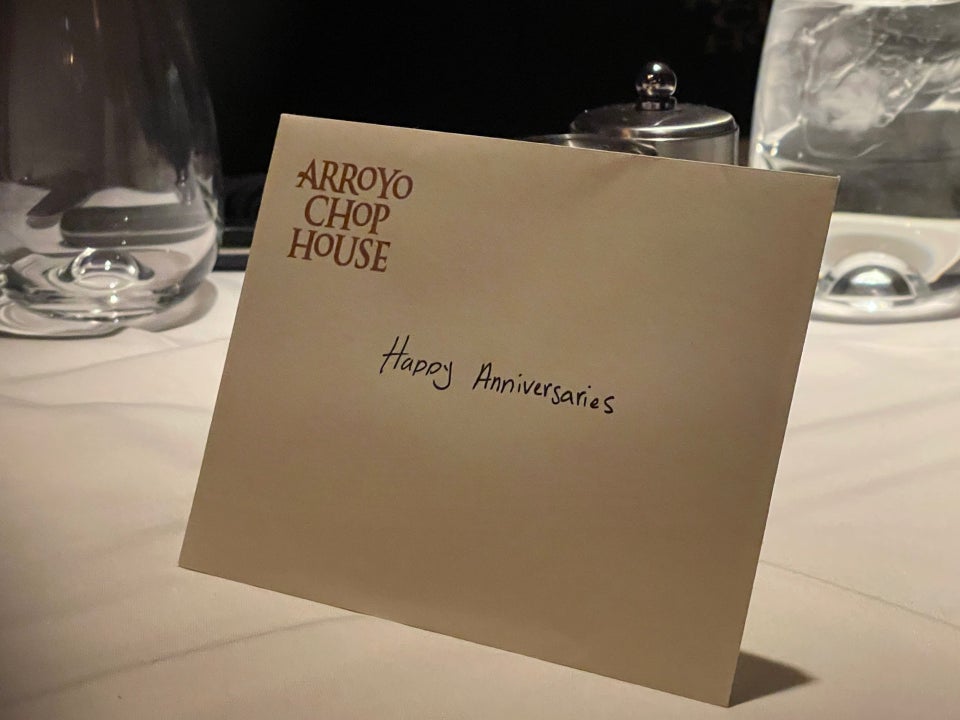 ARROYO
CHOP
HOUSE
Happy Anniversaries